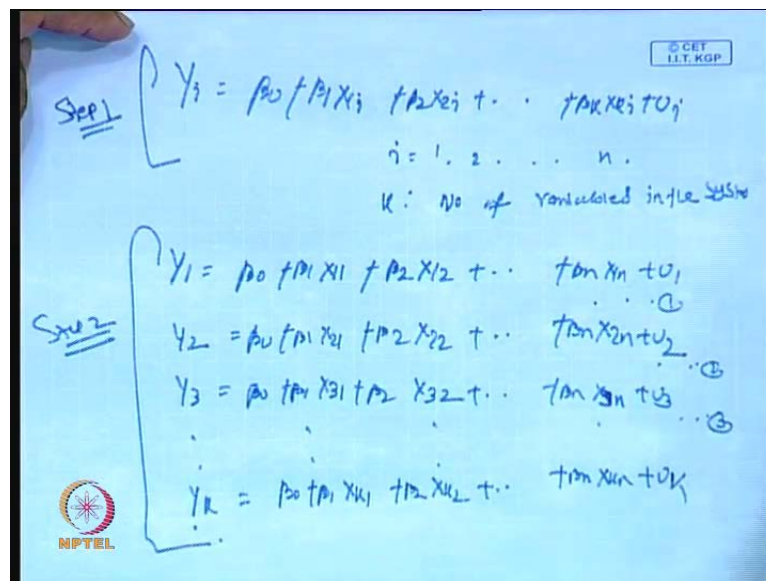 © CET
I.I.T. KGP
Step 1
Yj = β0 + β1 X1j + β2 X2j + . . + βK XKj + Uj
j = 1. 2 . . . . n.
K : No of variables in the system
Step 2
Y1 = β0 + β1 X11 + β2 X12 + . . + βn X1n + U1
. . . ①
Y2 = β0 + β1 X21 + β2 X22 + . . + βn X2n + U2
. . . ②
Y3 = β0 + β1 X31 + β2 X32 + . . + βn X3n + U3
. . . ③
YK = β0 + β1 XK1 + β2 XK2 + . . + βn XKn + UK
NPTEL